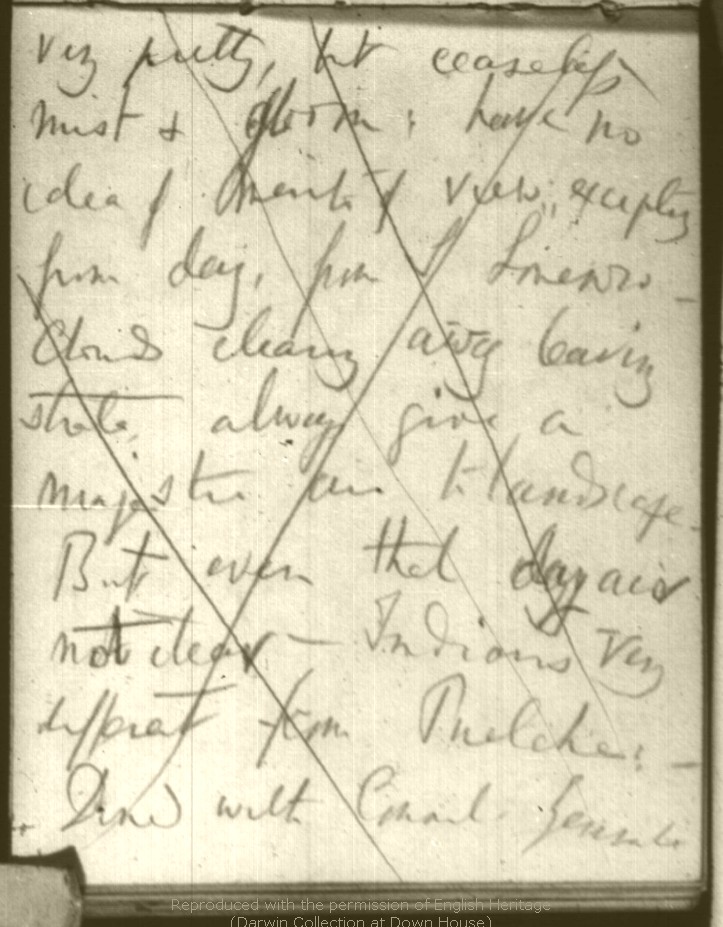 very pretty, but ceaseless
mist & gloom: have no
idea of merits of view, excepting
from day, from S. Lorenzo —
Clouds clearing away leaving
strata, always give a
majestic air to landscape.
But even that day air
not clear — Indians very
different from Puelche: —
Dined with Consul General
Reproduced with the permission of English Heritage
(Darwin Collection at Down House)